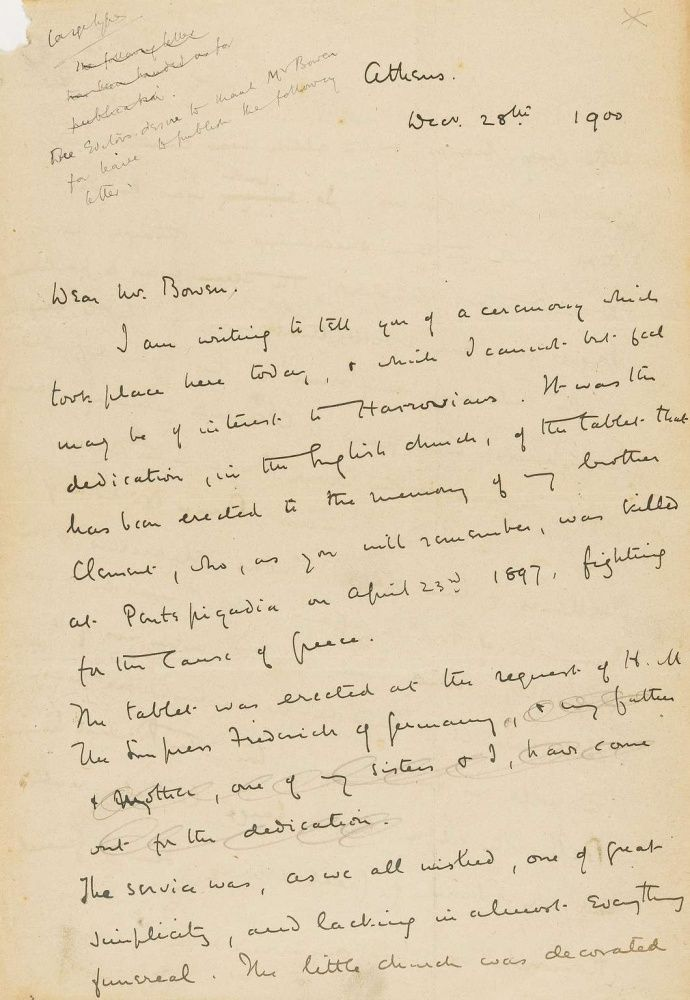 Large type
The following letter
has been handed us for
publication.
The Editors desire to thank Mr Bowen
for leave to publish the following
letter:
Athens.
Decr. 28th 1900
Dear Mr. Bowen.
I am writing to tell you of a ceremony which
took place here today, & which I cannot but feel
may be of interest to Harrovians. It was the
dedication, in the English church, of the tablet that
has been erected to the memory of my brother
Clement, who, as you will remember, was killed
at Pentepigadia on April 23rd 1897, fighting
for the Cause of Greece.
The tablet was erected at the request of H. M
The Empress Frederick of Germany, & my father
& Mother, one of my sisters & I, have come
out for the dedication.
The service was, as we all wished, one of great
simplicity, and lacking in almost everything
funereal. The little church was decorated